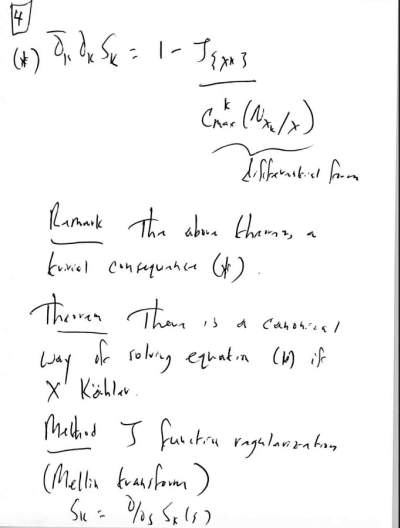 4
(*) ∂̄_K ∂_K S_K = 1 - J_{X^K}
C^K_max (N_{X_K/X})
differential form
Remark The above theorem is a
trivial consequence (*).
Theorem There is a canonical
way of solving equation (*) if
X Kähler.
Method J function regularization
(Mellin transform)
S_K = ∂/∂s S_K(s)